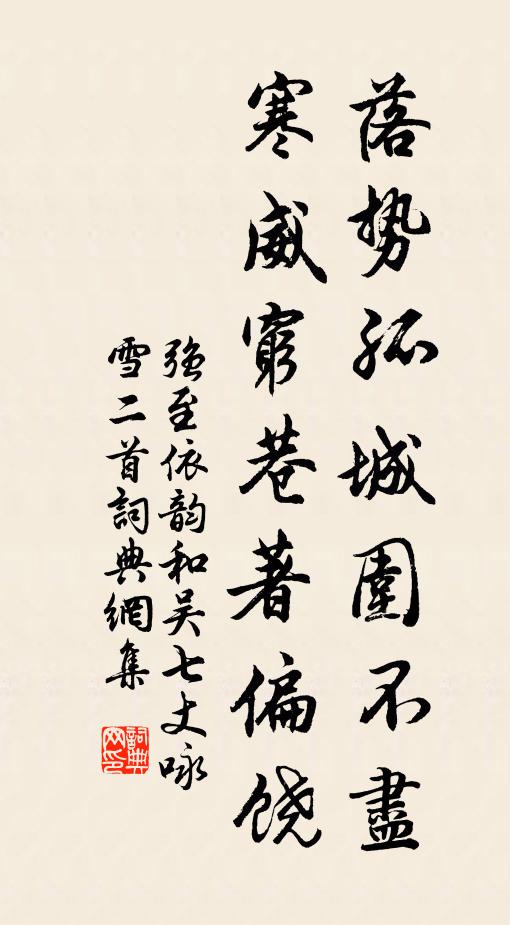 落势孤城圍不盡
寒威窮巷著偏饶
強至依韵和吴七丈咏
雪二首詞典網集
詞典
网印